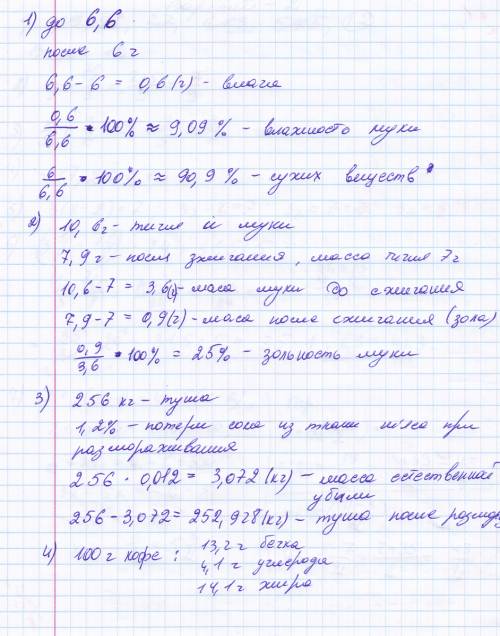 1) до 6,6.
после 6 г
6,6 - 6 = 0,6 (г) - влага
0,6/6,6 • 100% ≈ 9,09 % - влажность муки
6/6,6 • 100% ≈ 90,9 % - сухих веществ
2) 10,6 г - тигля и муки
7,9 г - после зжигания, масса тигля 7 г
10,6 - 7 = 3,6 (г) - маса муки до сжигания
7,9 - 7 = 0,9 (г) - маса после сжигания (зола)
0,9/3,6 • 100% = 25% - зольность муки
3) 256 кг - туша
1,2% - потери сока из ткани мяса при
размораживания
256 • 0,012 = 3,072 (кг) - масса естественной
убыли
256 - 3,072 = 252,928 (кг) - туша после размор
4) 100 г кофе : 13,2 г белка
4,1 г углерода
14,1 г жира